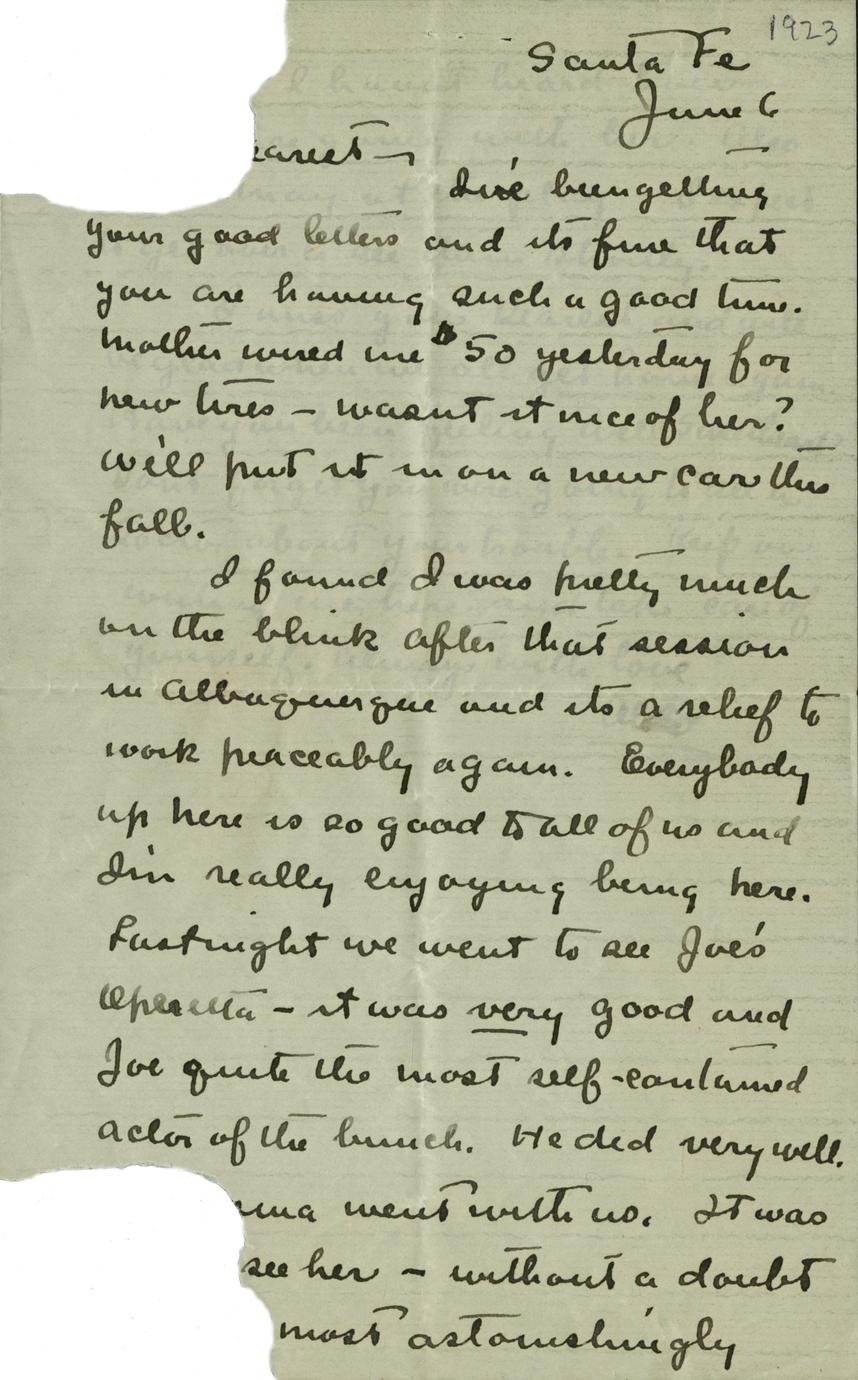 1923
Santa Fe
June 6
earest —
I've bungetting
your good letters and its fine that
you are having such a good time.
Mother wired me $50 yesterday for
new tires — wasnt it nice of her?
We'll put it in on a new car this
fall.
I found I was pretty much
on the blink after that session
in Albuquerque and its a relief to
work peaceably again. Everybody
up here is so good to all of us and
I'm really enjoying being here.
Last night we went to see Joe's
Operetta — it was very good and
Joe quite the most self-contained
actor of the bunch. He did very well.
went with us. It was
see her — without a doubt
most astonishingly